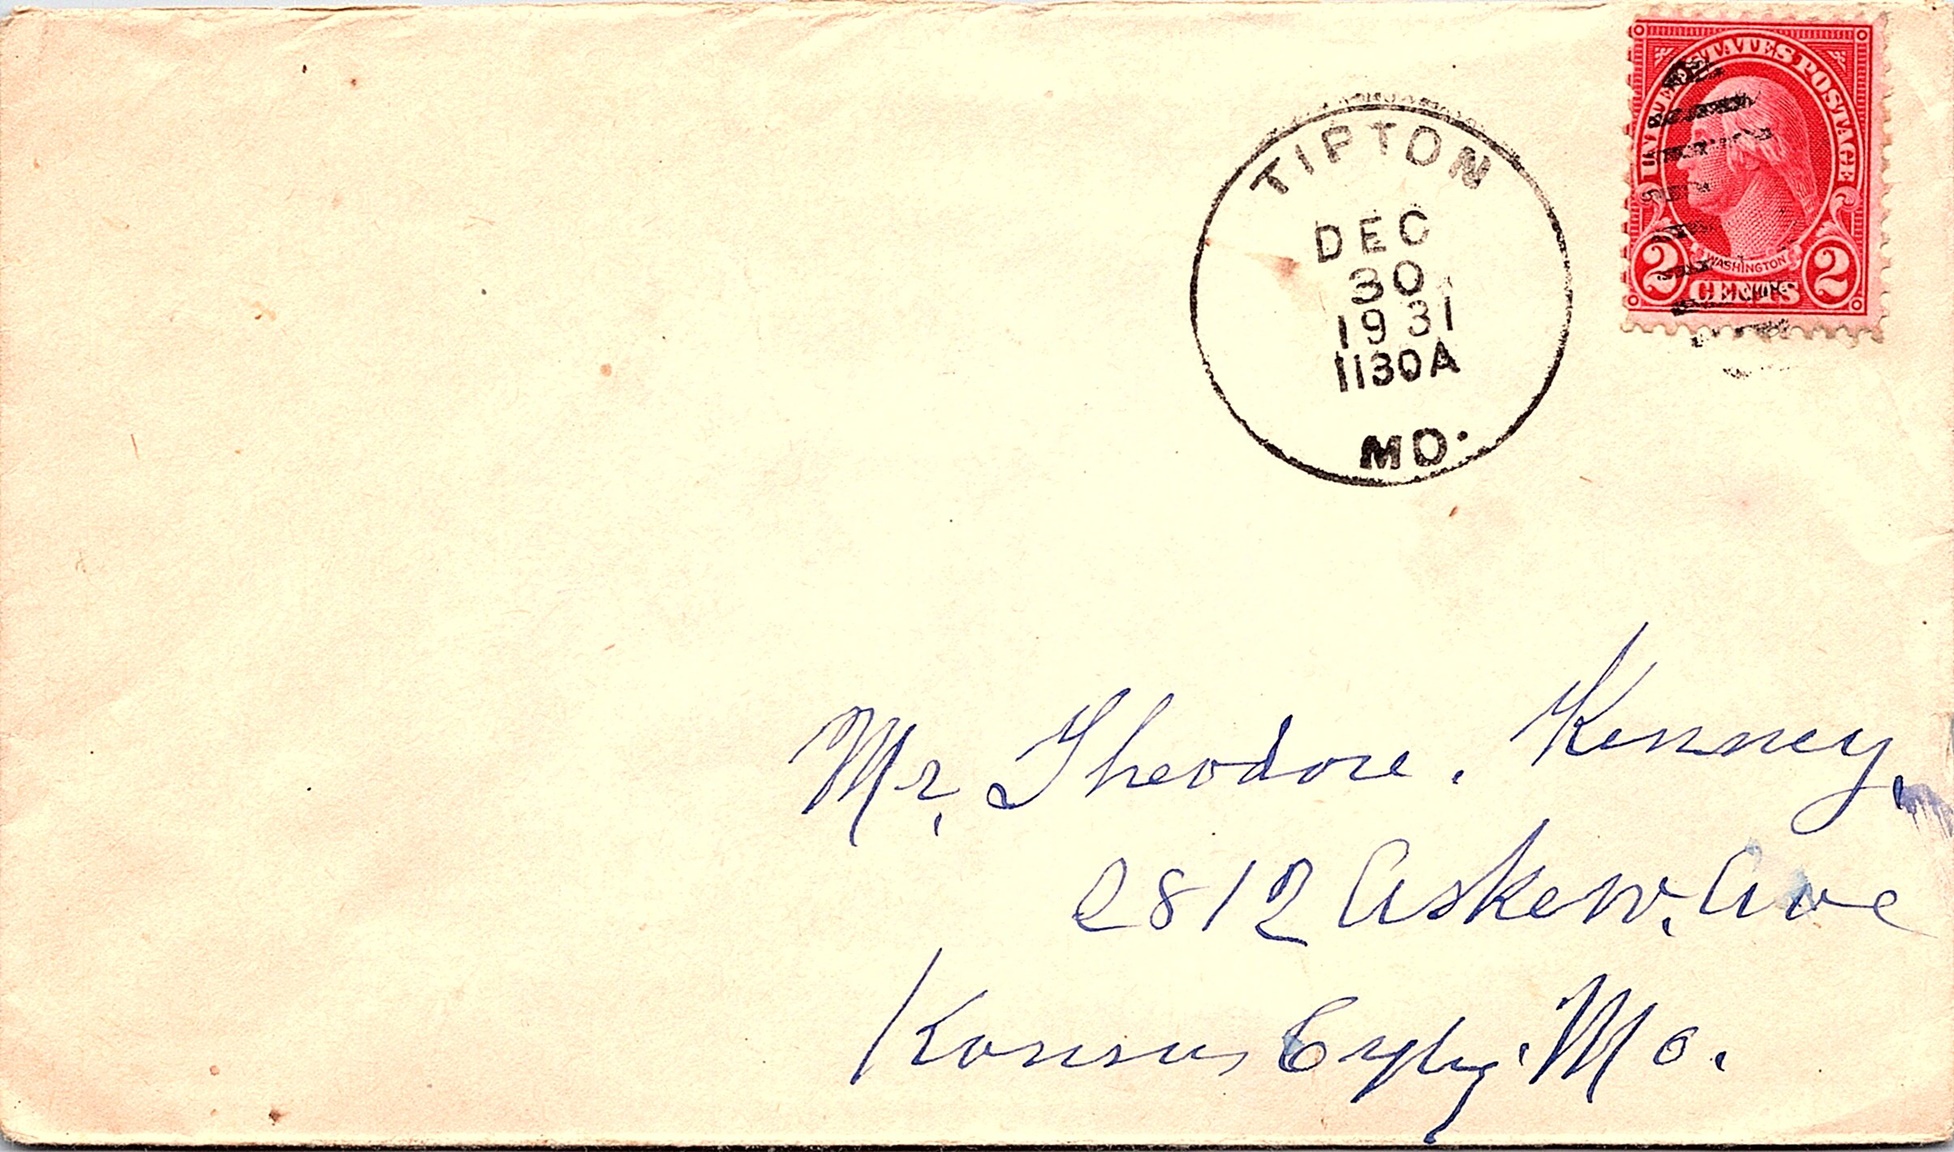 UNITED STATES POSTAGE
WASHINGTON
2 CENTS 2
TIPTON
DEC
30
1931
1130A
MO.
Mr, Theodore. Kenney,
2812 Askew. Ave
Kansas City. Mo.